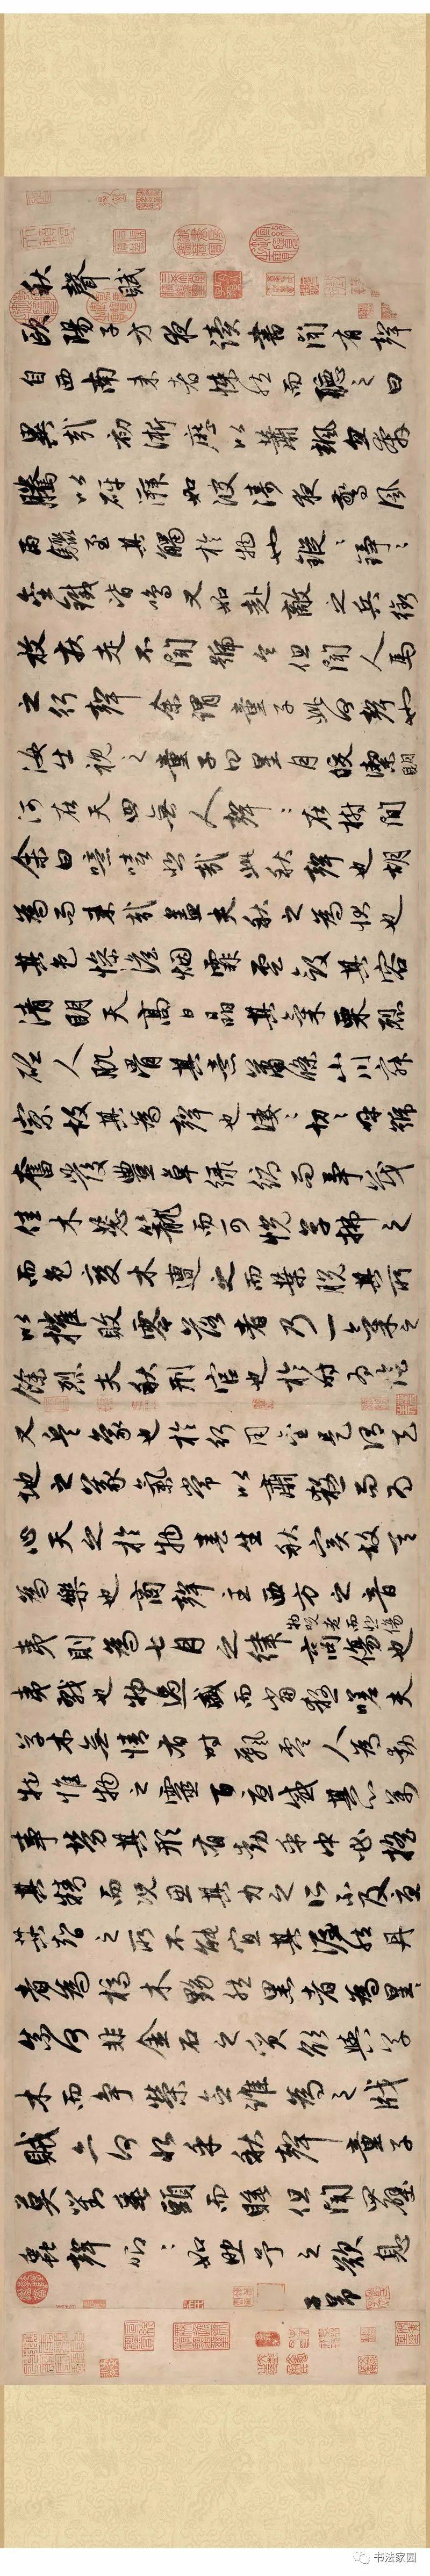 秋聲賦
歐陽子方夜讀書聞有聲
自西南来者悚然而聽之曰
異哉初淅瀝以蕭颯忽奔
騰以砰湃如波濤夜驚風
雨驟至其觸於物也鏦〻錚〻
金鐵皆鳴又如赴敵之兵銜
枚疾走不聞號令但聞人馬
之行聲余謂童子此何聲也
汝出視之童子曰星月皎潔明
河在天四無人聲〻在樹間
余曰噫嘻悲哉此秋聲也胡
為而来哉盖夫秋之為状也
其色慘澹烟霏雲斂其容
清明天高日晶其氣栗烈
砭人肌骨其意蕭條山川寂
寥故其為聲也淒〻切〻呼號
奮發豐草綠縟而爭茂
佳木葱籠而可悦草拂之
而色變木遭之而葉脱其所
以摧敗零落者乃一氣之
餘烈夫秋刑官也於時為陰
又兵象也於行用金是謂天
地之義氣常以肅殺而為
心天之於物春生秋實故其
為樂也商聲主西方之音
夷則為七月之律商傷也
物既老而悲傷
夷戮也物過盛而當殺嗟夫
草木無情有時飄零人為動
物惟物之靈百憂感其心萬
事勞其形有動乎中必搖
其精而況思其力之所不及憂
其智之所不能宜其渥然丹
者為槁木黟然黑者為星〻
奈何非金石之質欲與草
木而爭榮念誰為之戕
賊亦何恨乎秋聲童子
莫對垂頭而睡但聞四壁
蟲聲唧〻如助予之歎息
子昂
书法家园